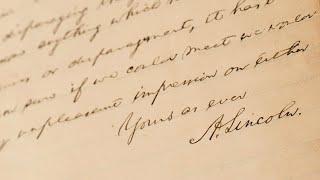 disparaging
anything which
or disparagement, it has
sure if we could meet we would
unpleasant impression on either
Yours as ever
A. Lincoln.